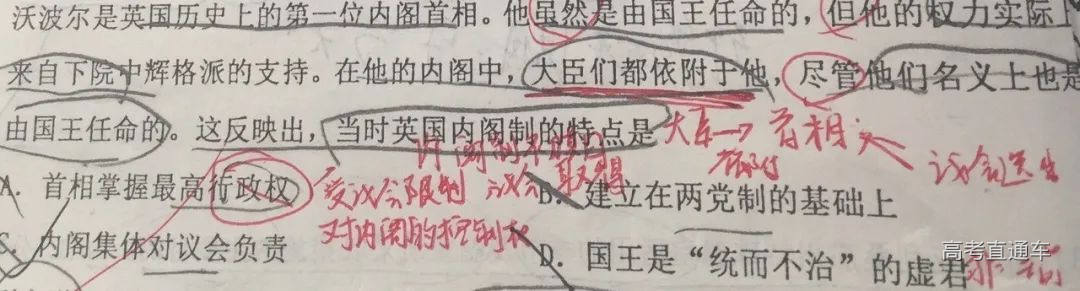 沃波尔是英国历史上的第一位内阁首相。他虽然是由国王任命的，但他的权力实际上
来自下院中辉格派的支持。在他的内阁中，大臣们都依附于他，尽管他们名义上也是
由国王任命的。这反映出，当时英国内阁制的特点是
大臣→首相
依附
议会选出
受议会限制
对内阁的控制权
A. 首相掌握最高行政权
B. 建立在两党制的基础上
C. 内阁集体对议会负责
D. 国王是“统而不治”的虚君
高考直通车